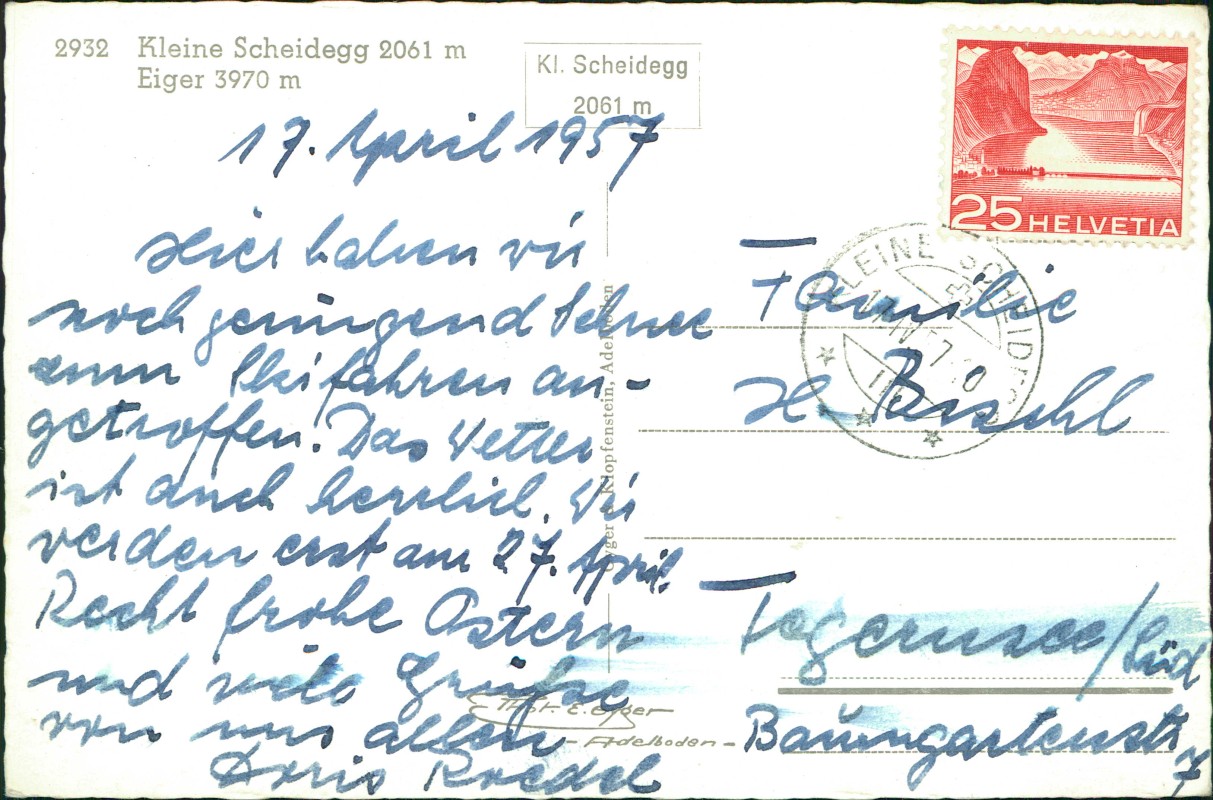 2932 Kleine Scheidegg 2061 m
Eiger 3970 m
Kl. Scheidegg
2061 m
25 HELVETIA
KLEINE SCHEIDEGG
17. April 1957
Hier haben wir
noch genügend Schnee
zum Skifahren an-
getroffen. Das Wetter
ist auch herrlich. Wir
werden erst am 27. April.
Recht frohe Ostern
und viele Grüsse
von uns allen
Doris Roedel
Gyger & Klopfenstein, Adelboden
Phot. E. Gyger
Adelboden
Familie
H.
Tegernsee/Süd
Baumgartenstr
7